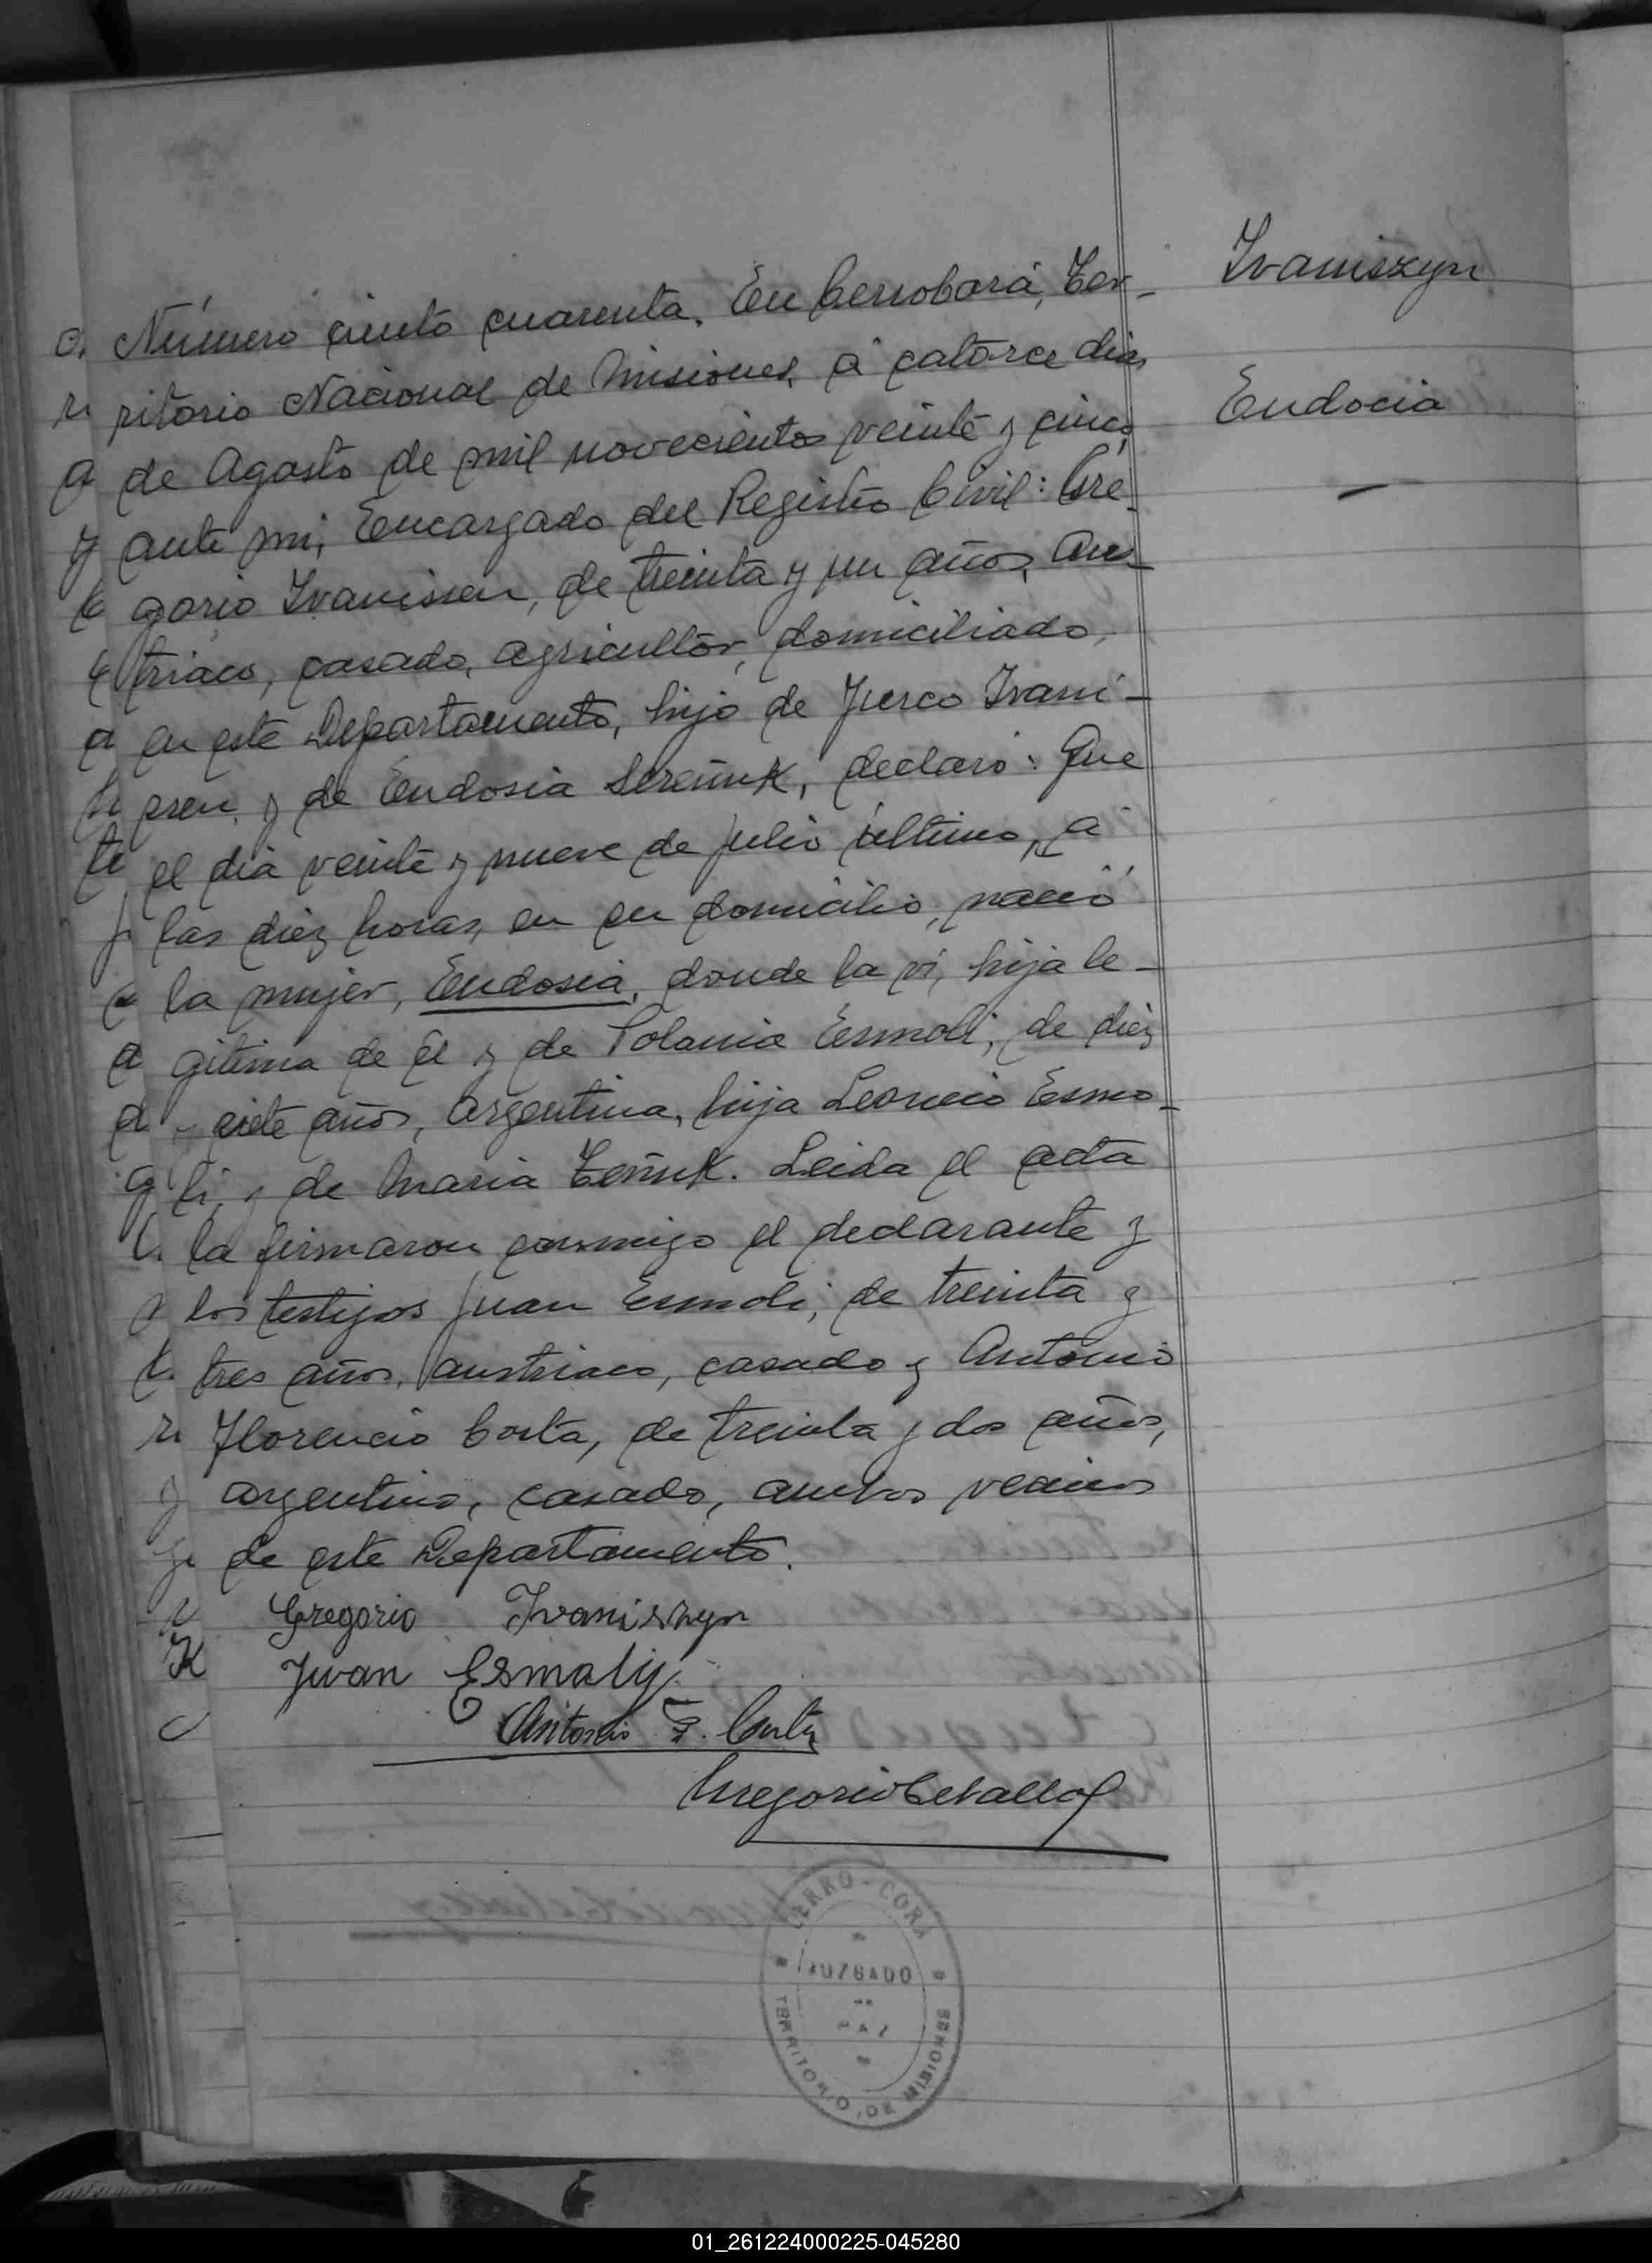 Ivaniszyn
Eudocia
Número ciento cuarenta. En Cerro Corá, Ter-
ritorio Nacional de Misiones, á catorce dias
de Agosto de mil novecientos veinte y cinco,
y ante mi, Encargado del Registro Civil: Gre-
gorio Ivanissen, de treinta y un años, Aus-
triaco, casado, agricultor, domiciliado,
en este Departamento, hijo de Jurco Ivani-
sen, y de Eudosia, declaró: Que
el dia veinte y nueve de julio último, á
las diez horas, en su domicilio, nació
la mujer, Eudosia, donde la vi, hija le-
gitima de él y de Polania Esmoli, de diez
y siete años, Argentina, hija Leoncio Esmo-
li, y de Maria. Leida el acta
la firmaron conmigo el declarante y
los testigos Juan Esmoli, de treinta y
tres años, austriaco, casado y Antonio
Florencio Costa, de treinta y dos años,
argentino, casado, ambos vecinos
de este Departamento.
Gregorio Ivaniszyn
Juan Esmaly
Antonio F. Costa
Gregorio Ceballos
CERRO-CORÁ
JUZGADO
DE
PAZ
TERRITORIO DE MISIONES
01_261224000225-045280